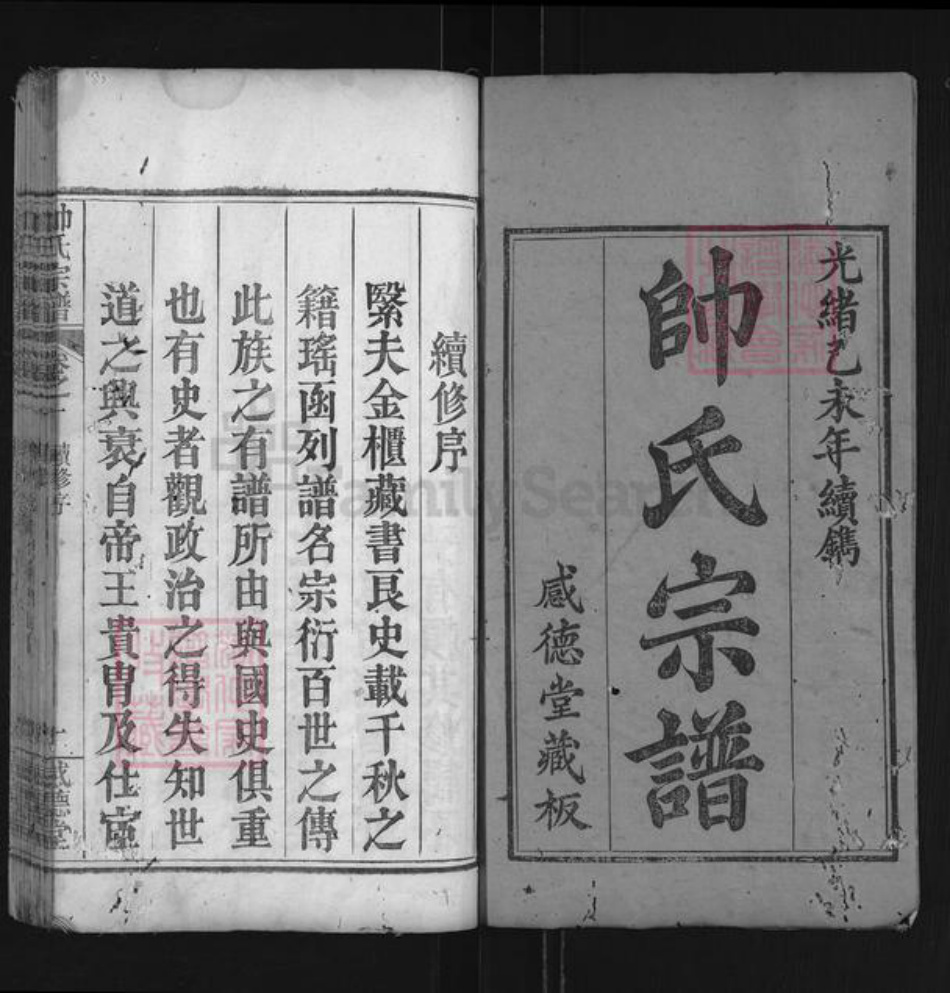 光緒乙未年續鐫
帥氏宗譜
感德堂藏板
續修序
繄夫金櫃藏書良史載千秋之
籍瑤函列譜名宗衍百世之傳
此族之有譜所由與國史俱重
也有史者觀政治之得失知世
道之興衰自帝王貴胄及仕宦
帥氏宗譜
卷之一
續修序
一
感德堂
FamilySearch